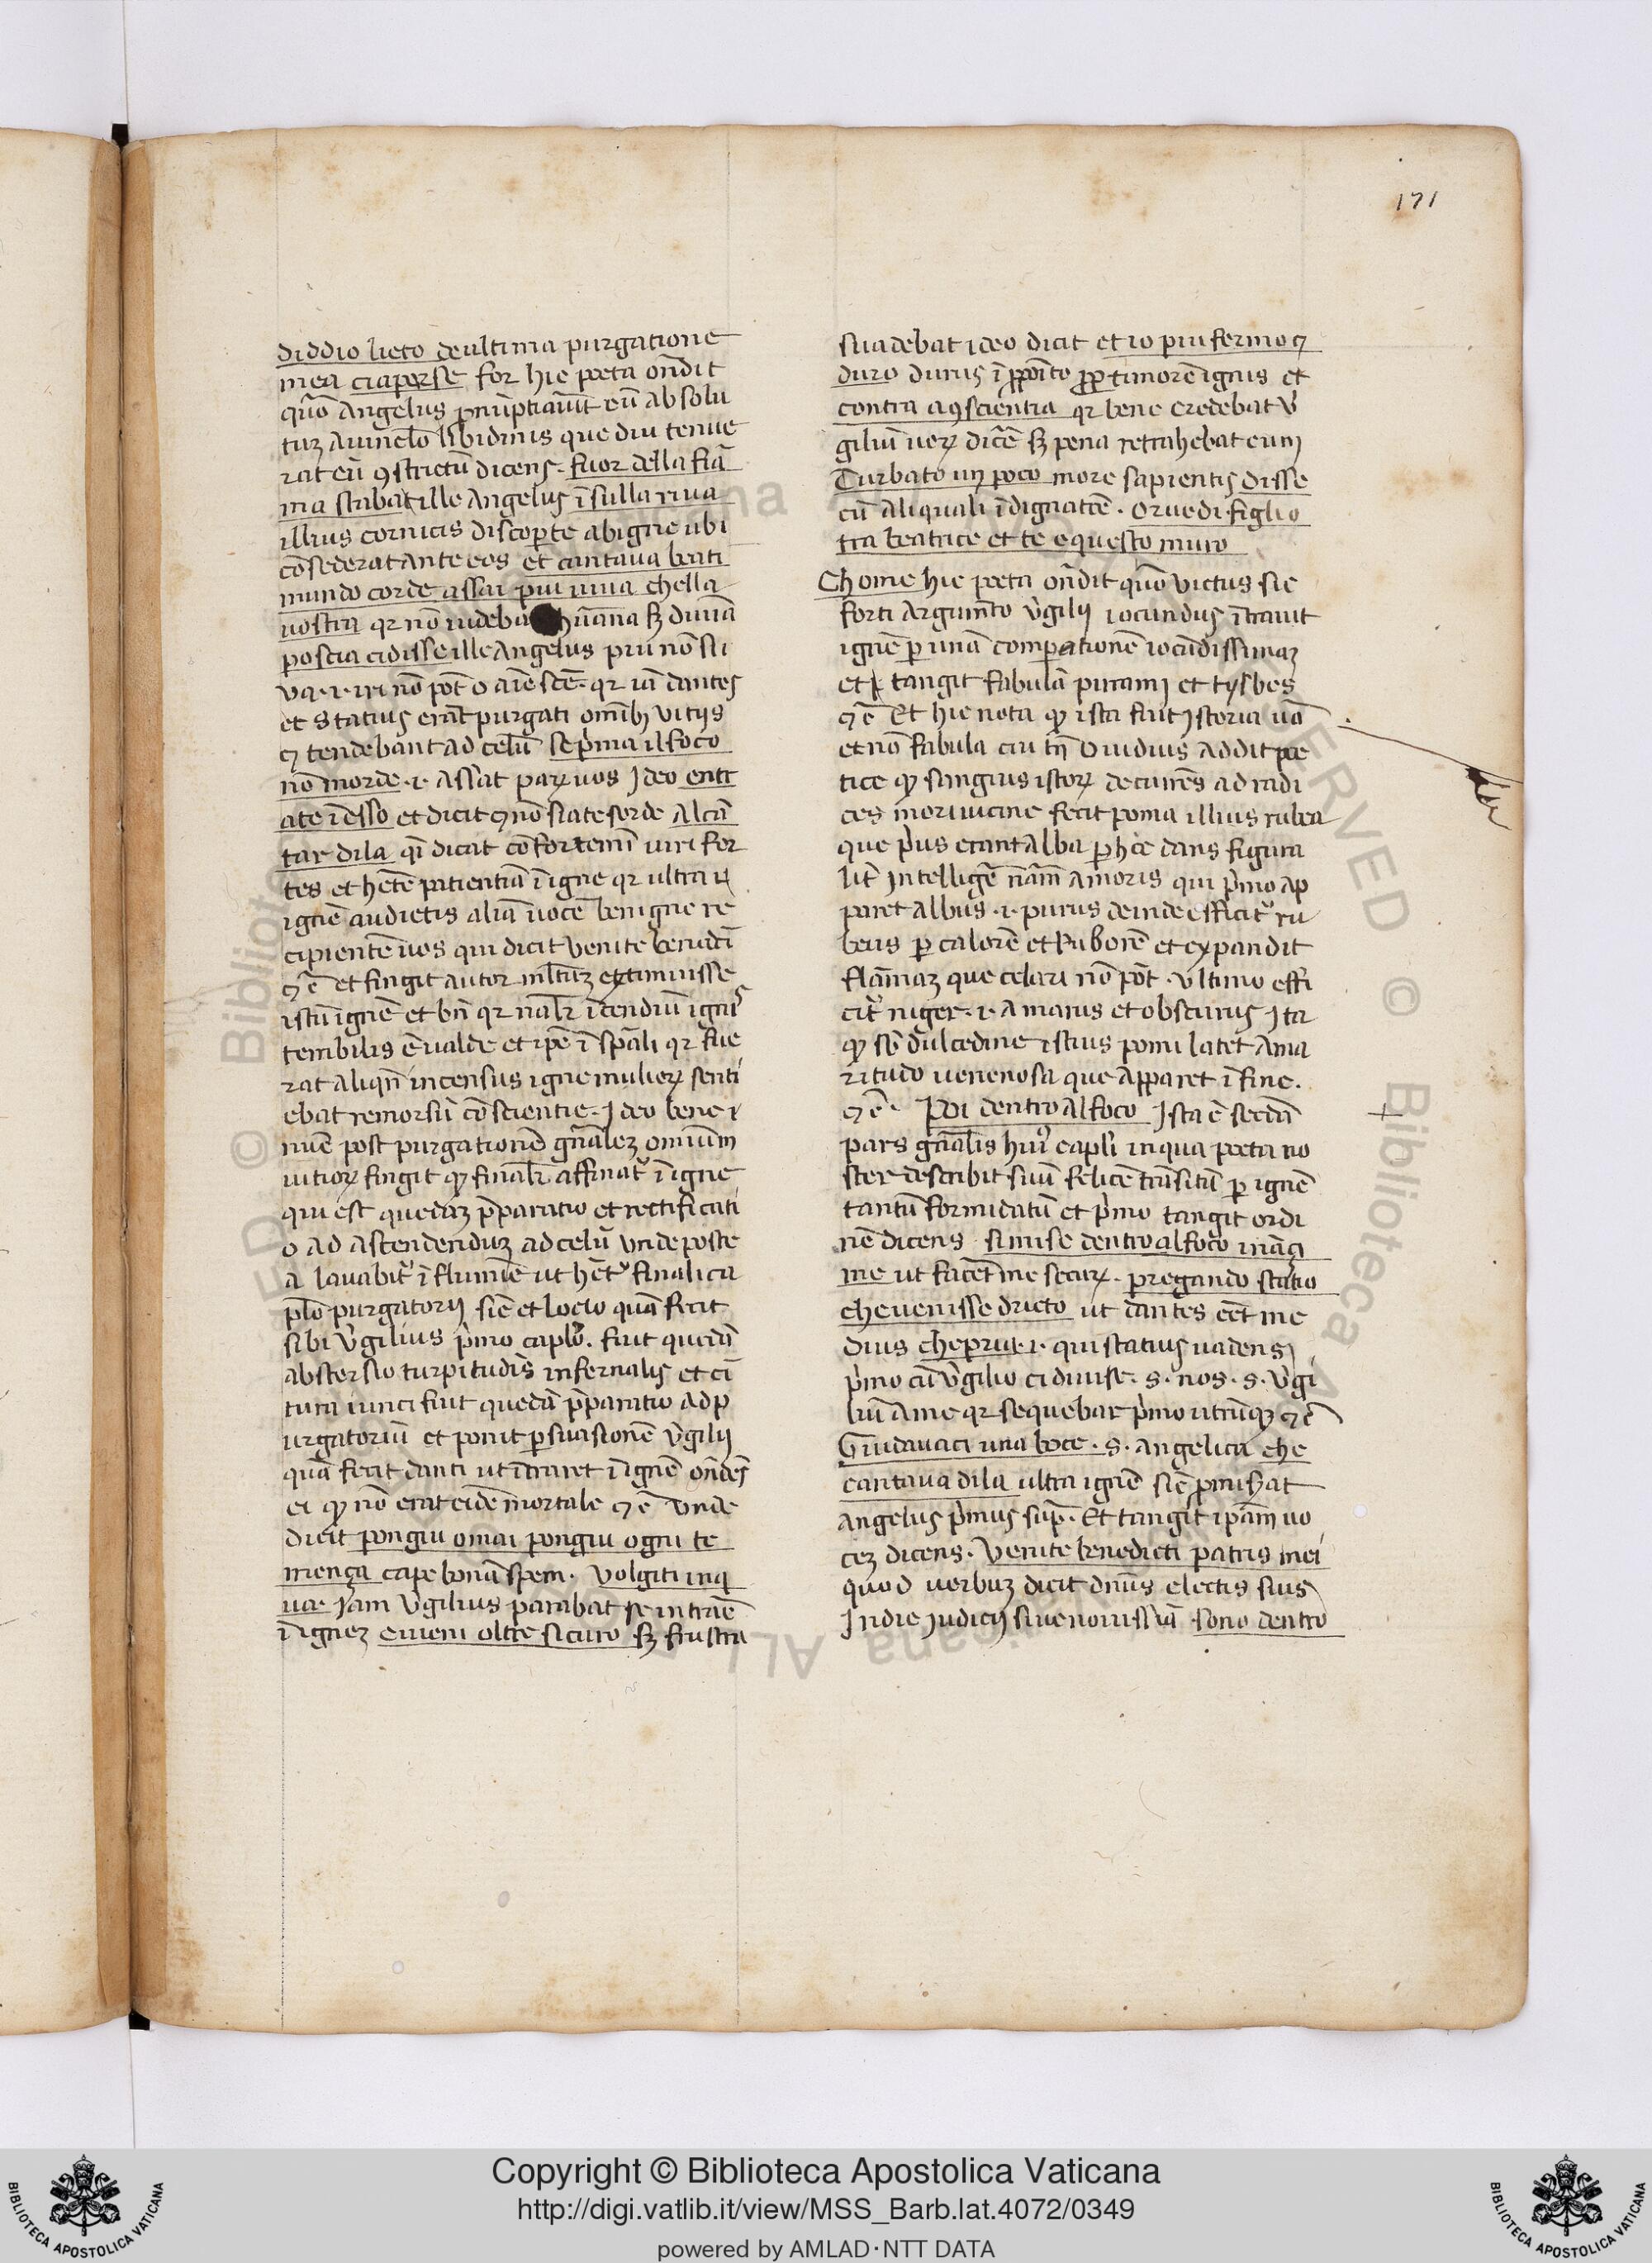 171
diddio lieto de ultima purgatione
mea ci aperse for hic poeta on̄dit
quō Angelus
tuz a uinclo libidinis que diu tenue
rat eū ꝯstrictū dicens. fuor della fiā
ma staba ille Angelus ī sulla riua
illius cornicis discoperte ab igne ubi
cōsederat ante eos et cantaua beati
mundo corde assai piu uiua chella
nostra qr nō hūana sꝫ diuīa
poscia ci disse ille Angelus piu nō si
va .i. iri nō pōt o aīe scē. qr iā dantes
et Statius erāt purgati omībꝫ vitijs
⁊ tendebant ad celū se prima il foco
nō morde .i. assat vos Ideo entr
ate ī esso et dicit ⁊ nō siate sorde al cā
tar di la qī dicat cōfortemī uiri for
tes et patientiā ī igne qr ultra
ignē audietis aliā uocē benigne re
cipientē uos qui dicit venite benedī
⁊ c̄ et fingit autor extimuisse
istū ignē et bn̄ qr īcendiū ignis
terribilis ē ualde et ī qr fue
rat aliqn̄ incensus igne mulieꝝ senti
ebat remorsū cōscientie. Ideo bene
post purgationē omnium
uitioꝝ fingit ꝙ ī igne
qui est quedaz p̄paratio et rectificati
o ad ascendenduz ad celū vnde poste
a lauabit᷑ ī flumīe ut finalica
purgatorij sic̄ et lotio quā fecit
sibi v̓gilius p̓mo . fuit quedā
abstersio turpitudīs infernalis et cī
tura iunci fuit quedā p̄paratio ad p
urgatoriū et ponit ꝑsuasionē v̓gilij
quā fecit danti ut ītraret ī ignē
ei ꝙ nō erat eidē mortale ⁊ c̄ Vnde
dicit pon giu omai pon giu ogni te
mença cape bonā spem. Volgiti in q
ua Jam v̓gilius parabat se intrāe
ī ignez e uieni oltre sicuro sꝫ frustra
suadebat ideo dicit et io piu fermo ⁊
duro durus ī timorē ignis et
contra ꝯscientia qr bene credebat v̓
giliū ueꝝ dicē sꝫ pena retrahebat eum
Turbato un poco more sapientis disse
cū aliquali īdignatōe. or vedi figlio
tra beatrice et te e questo muro
Chome hic poeta on̄dit quō victus sic
forti argum̄to v̓gilij iocundus ītrauit
ignē ꝑ unā comparationē iocūdissimaz
et tangit fabulā pirami et tysbes
⁊ c̄ Et hic nota ꝙ ista fuit ystoria uā
et nō fabula cui tn̄ Ouidius addit poe
tice ꝙ sanguis istoꝝ decurrēs ad radi
ces mori uicine fecit poma illius rubea
que p̓us erant alba ꝑ dans figura
lit̄ intelligē nām amoris qui p̓mo ap
paret albus .i. purus deinde efficit᷑ ru
beus ꝑ calorē et Ruborē et expandit
flāmaz que celari nō pōt. Vltimo effi
cit᷑ niger .i. amarus et obscurus Ita
ꝙ sb̄ dulcedine istius pomi latet ama
ritudo uenenosa que apparet ī fine.
⁊ c̄. Poi dentro al foco Ista ē secdā
pars gn̄alis hui᷒ capl̄i in qua poeta no
ster describit suū felicē trāsitū ꝑ ignē
tantū formidatū et p̓mo tangit ordi
nē dicens si mise dentro al foco inaçi
me ut facēt me secuꝝ. pregando statio
che uenisse drieto ut dantes eēt me
dius che pria .i. qui statius uadens
p̓mo cū v̓gilio ci diuise .s. nos .s. v̓gi
liū a me qr sequebar p̓mo utrūqꝫ ⁊ c̄
Guidavaci una boce .s. angelica che
cantaua di la ultra ignē sic̄ ꝓmisat
angelus p̓mus sup̄. Et tangit ipām uo
cez dicens. Venite benedicti patris mei
quod uerbuz dicit dn̄us electis suis
In die Judicij siue nouissīa sono dentro
Copyright © Biblioteca Apostolica Vaticana
http://digi.vatlib.it/view/MSS_Barb.lat.4072/0349
powered by AMLAD·NTT DATA
BIBLIOTECA APOSTOLICA VATICANA
BIBLIOTECA APOSTOLICA VATICANA